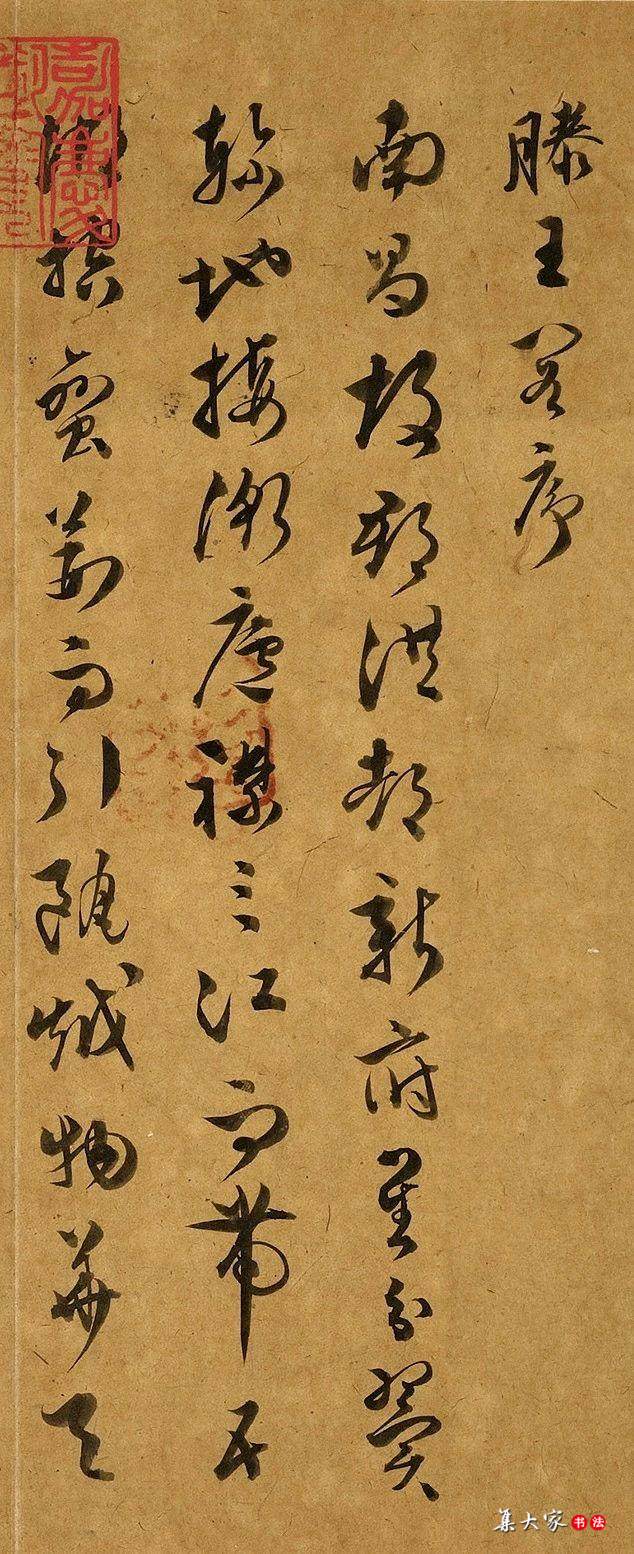 滕王閣序
南昌故郡洪都新府星分翼
軫地接衡廬襟三江而帶五
湖控蠻荊而引甌越物華天
集大家书法